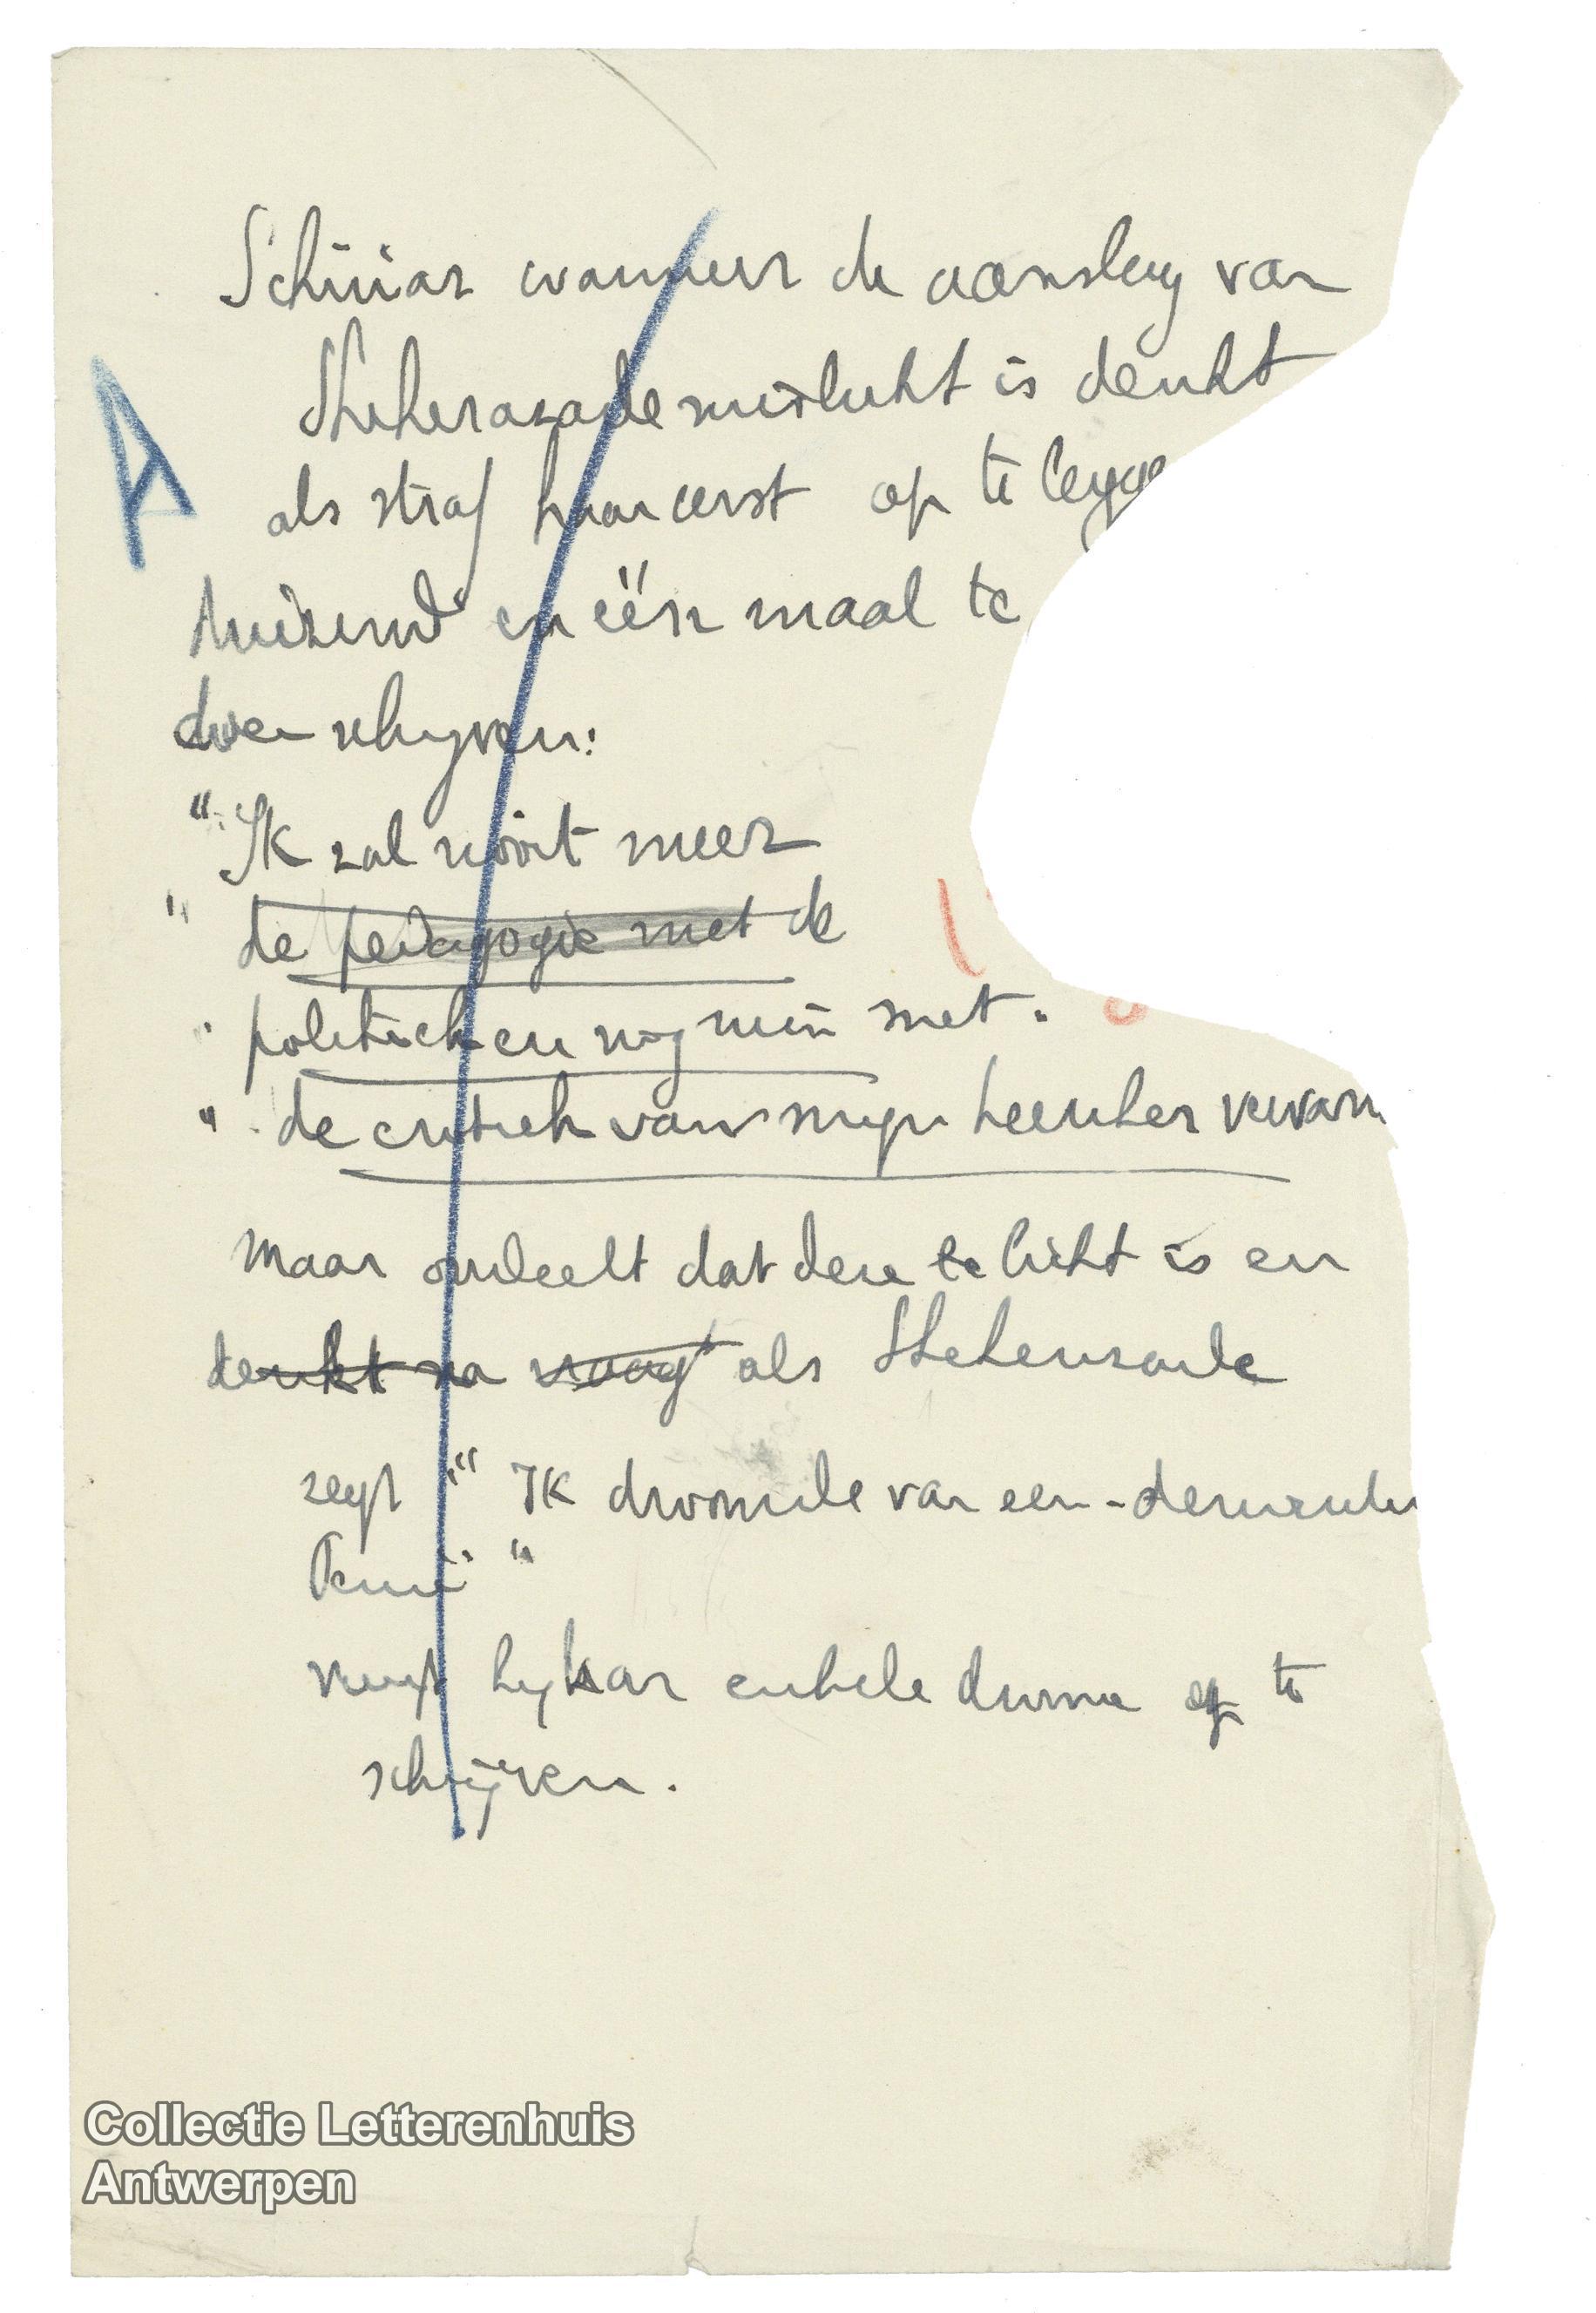 Schiriar wanneer de aanslag van
Sheherazade mislukt is denkt
als straf haar eerst op te legge
duizend en één maal te
doen schrijven:
"Ik zal nooit meer
" de pedagogie met de
" politiek en nog min met
" de critiek van mijn heerscher verwarr
maar oordeelt dat deze te licht is en
denkt na vraagt als Sheherazade
zegt " Ik droomde van een
"
vraagt hij haar enkele droome op te
schrijven.
Collectie Letterenhuis
Antwerpen
A